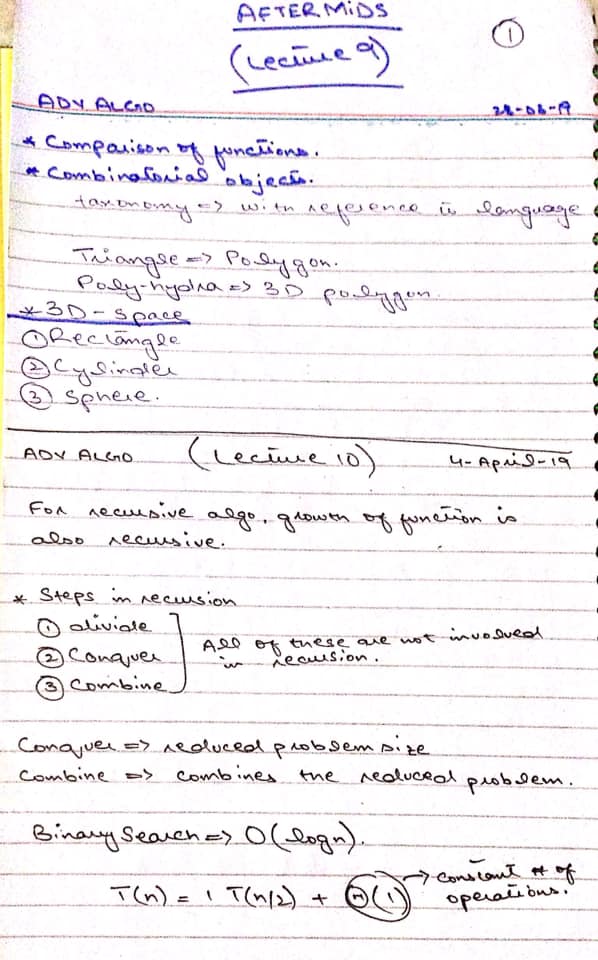 AFTER MIDS
①
(Lecture 9)
ADV ALGO 28-03-19
* Comparison of functions.
* Combinatorial objects.
taxonomy => with reference to language
Triangle => Polygon.
Poly-hydra => 3D polygon.
* 3D - space
① Rectangle
② Cylinder
③ Sphere.
ADV ALGO (Lecture 10) 4-April-19
For recursive algo, growth of function is
also recursive.
* Steps in recursion
① divide
② Conquer
③ Combine
All of these are not involved
in recursion.
Conquer => reduced problem size
Combine => combines the reduced problem.
Binary Search => O(logn).
T(n) = 1 T(n/2) + Θ(1) → constant # of
operations.